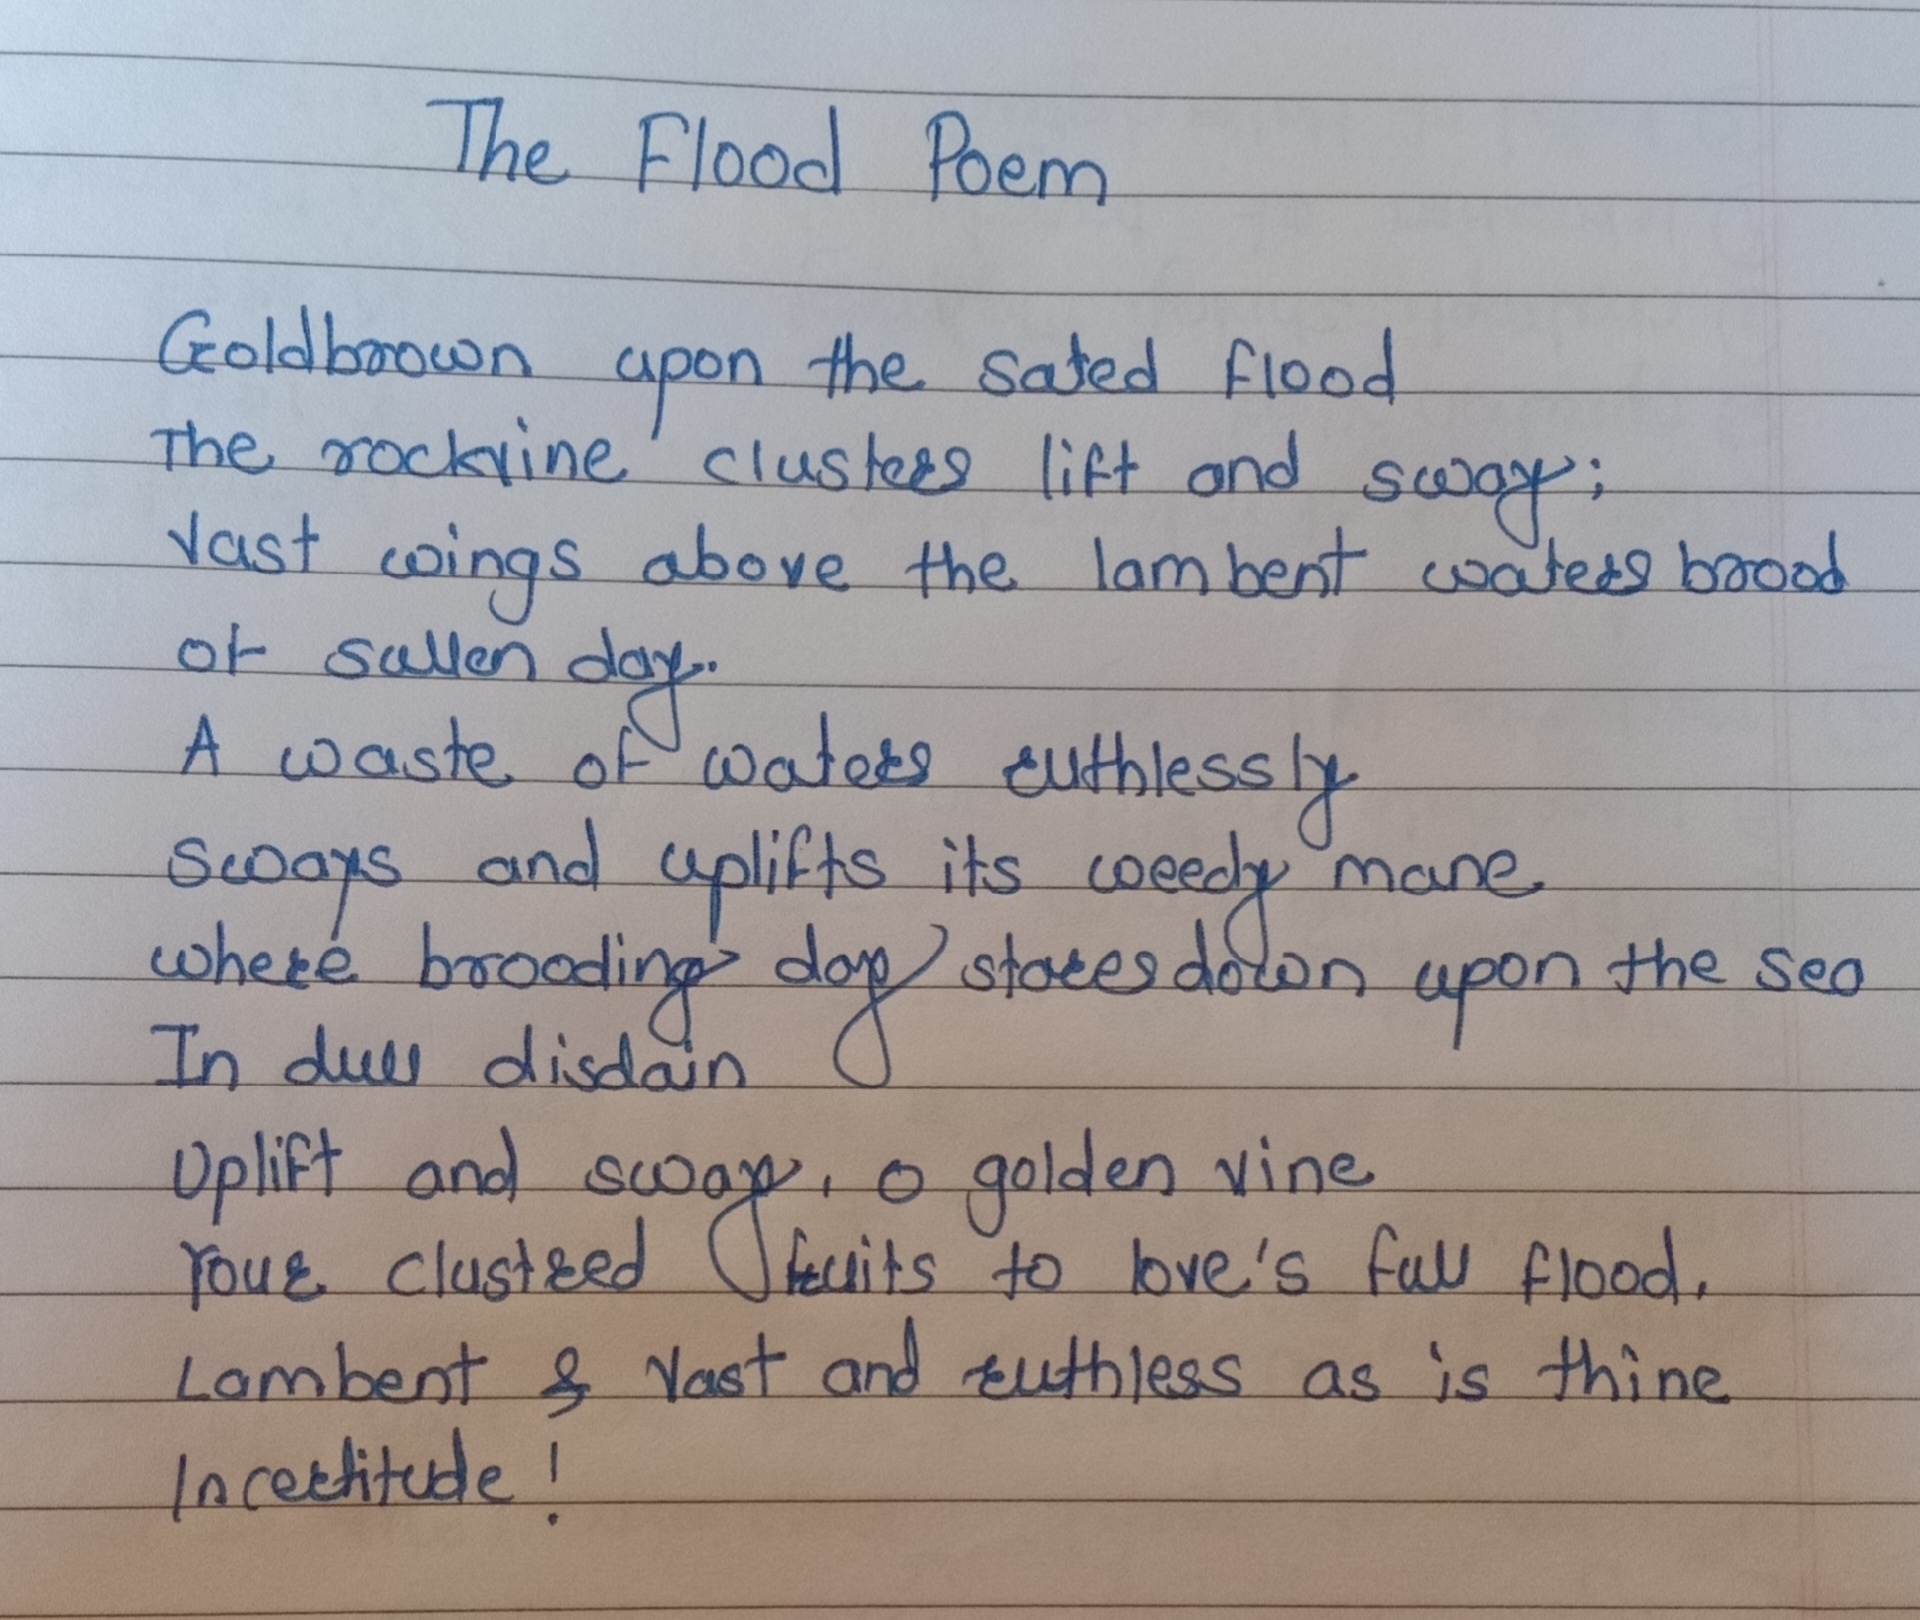 The Flood Poem
Goldbrown upon the sated flood
The rockvine clusters lift and sway;
Vast wings above the lambent waters brood
of sullen day.
A waste of waters ruthlessly
Sways and uplifts its weedy mane
where brooding day stares down upon the sea
In dull disdain
Uplift and sway, o golden vine
Your clustred fruits to love's full flood,
Lambent & Vast and ruthless as is thine
Incertitude!